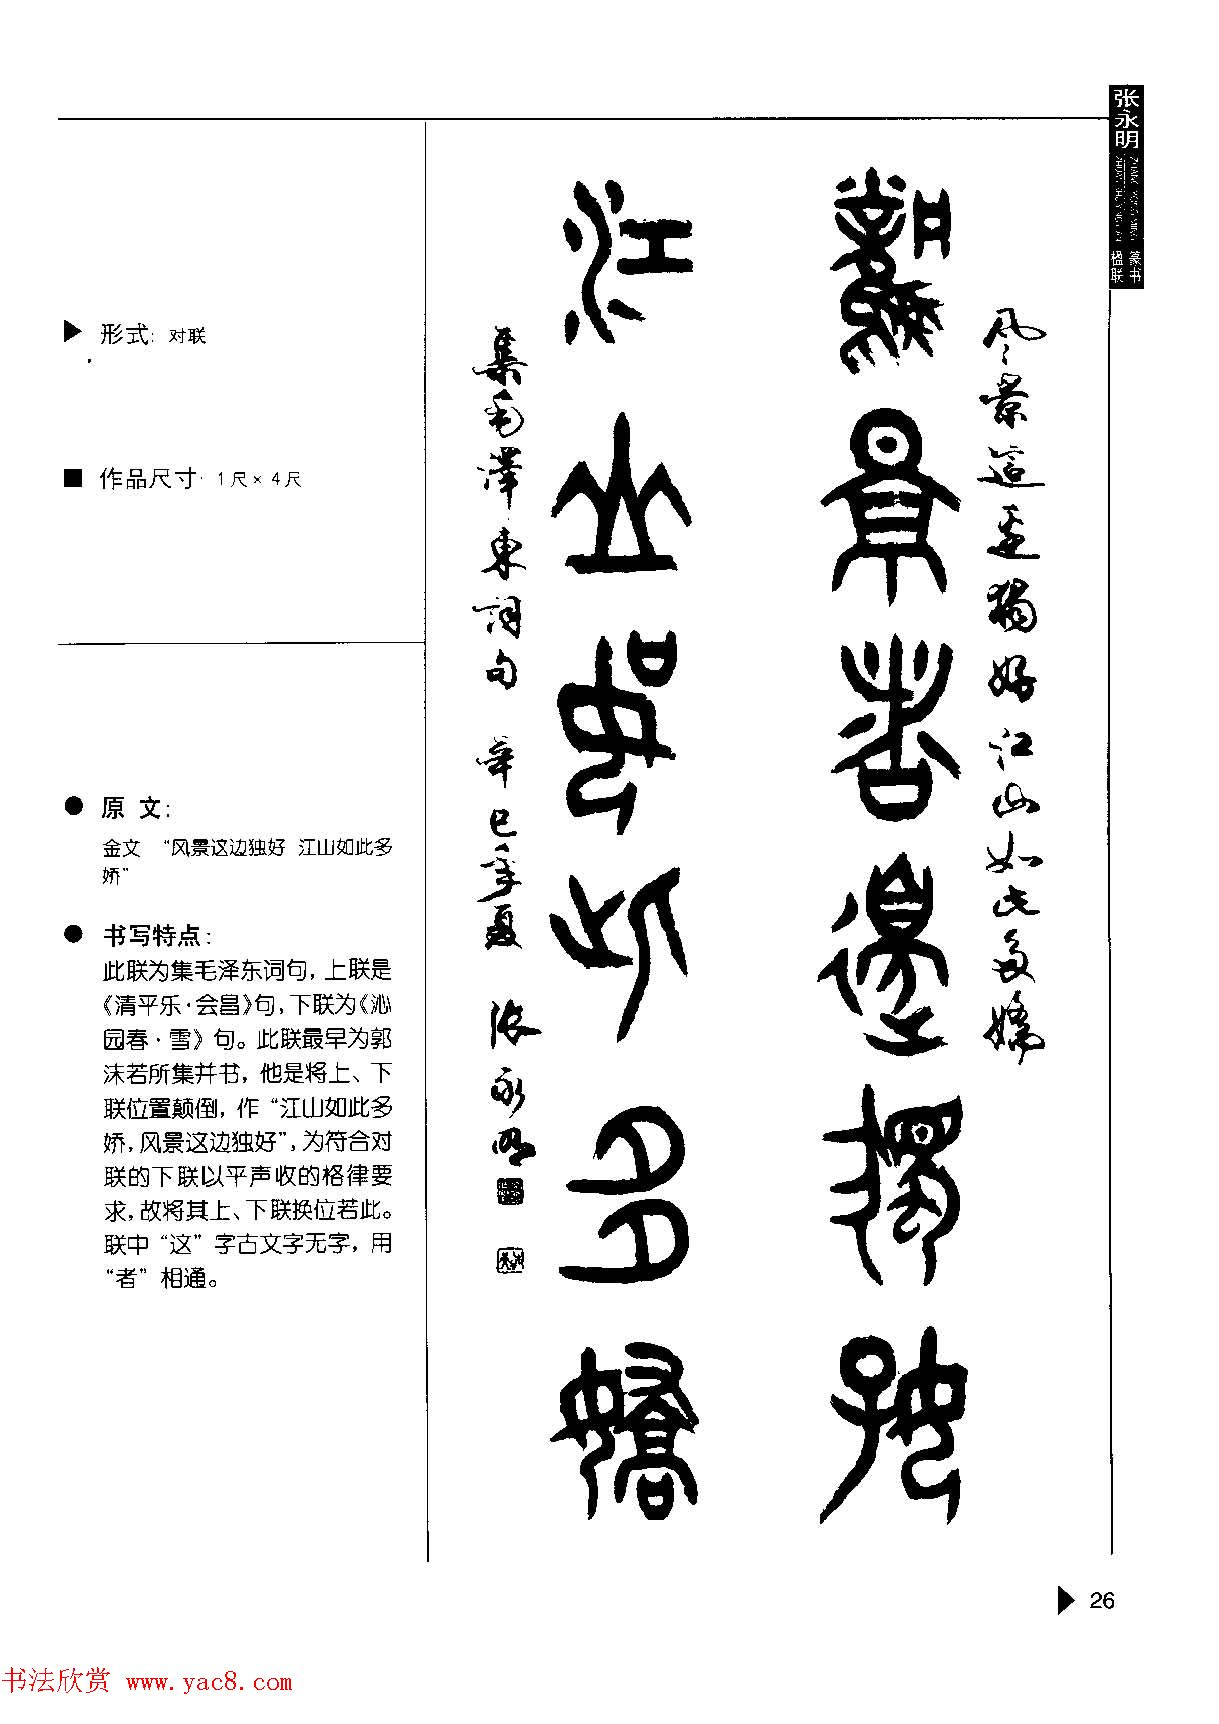 张永明
篆书
楹联
形式: 对联
作品尺寸· 1尺×4尺
原 文:
金文 “风景这边独好 江山如此多
娇”
书写特点:
此联为集毛泽东词句,上联是
《清平乐·会昌》句,下联为《沁
园春·雪》句。此联最早为郭
沫若所集并书,他是将上、下
联位置颠倒,作“江山如此多
娇,风景这边独好”,为符合对
联的下联以平声收的格律要
求,故将其上、下联换位若此。
联中“这”字古文字无字,用
“者”相通。
風景這邊獨好江山如此多嬌
風景者邊獨好
江山如此多嬌
集毛澤東詞句 辛巳年夏 張永明
26
书法欣赏 www.yac8.com